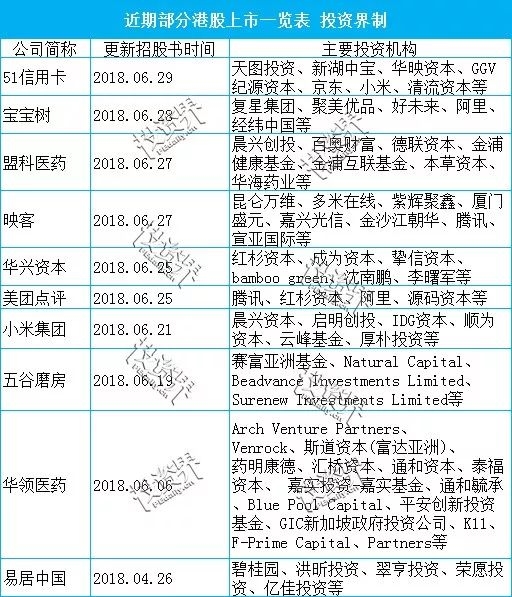 近期部分港股上市一览表 投资界制
公司简称 更新招股书时间 主要投资机构
51信用卡 2018.06.29 天图投资、新湖中宝、华映资本、GGV
纪源资本、京东、小米、清流资本等
宝宝树 2018.06.28 复星集团、聚美优品、好未来、阿里、
经纬中国等
盟科医药 2018.06.27 晨兴创投、百奥财富、德联资本、金浦
健康基金、金浦互联基金、本草资本、
华海药业等
映客 2018.06.27 昆仑万维、多米在线、紫辉聚鑫、厦门
盛元、嘉兴光信、金沙江朝华、腾讯、
宣亚国际等
华兴资本 2018.06.25 红杉资本、成为资本、挚信资本、
bamboo green、沈南鹏、李曙军等
美团点评 2018.06.25 腾讯、红杉资本、阿里、源码资本等
小米集团 2018.06.21 晨兴资本、启明创投、IDG资本、顺为
资本、云峰基金、厚朴投资等
五谷磨房 2018.06.19 赛富亚洲基金、Natural Capital、
Beadvance Investments Limited、
Surenew Investments Limited等
华领医药 2018.06.06 Arch Venture Partners、
Venrock、斯道资本(富达亚洲)、
药明康德、汇桥资本、通和资本、泰福
资本、 嘉实投资、嘉实基金、通和毓承
、Blue Pool Capital、平安创新投资
基金、GIC新加坡政府投资公司、K11、
F-Prime Capital、Partners等
易居中国 2018.04.26 碧桂园、洪昕投资、翠亨投资、荣愿投
资、亿佳投资等
投资界
PEdaily.cn